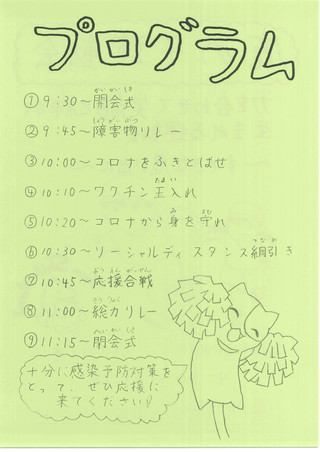 プログラム
①9:30～開会式
②9:45～障害物リレー
③10:00～コロナをふきとばせ
④10:10～ワクチン玉入れ
⑤10:20～コロナから身を守れ
⑥10:30～ソーシャルディスタンス綱引き
⑦10:45～応援合戦
⑧11:00～総力リレー
⑨11:15～閉会式
十分に感染予防対策を
とって、ぜひ応援に
来てください!